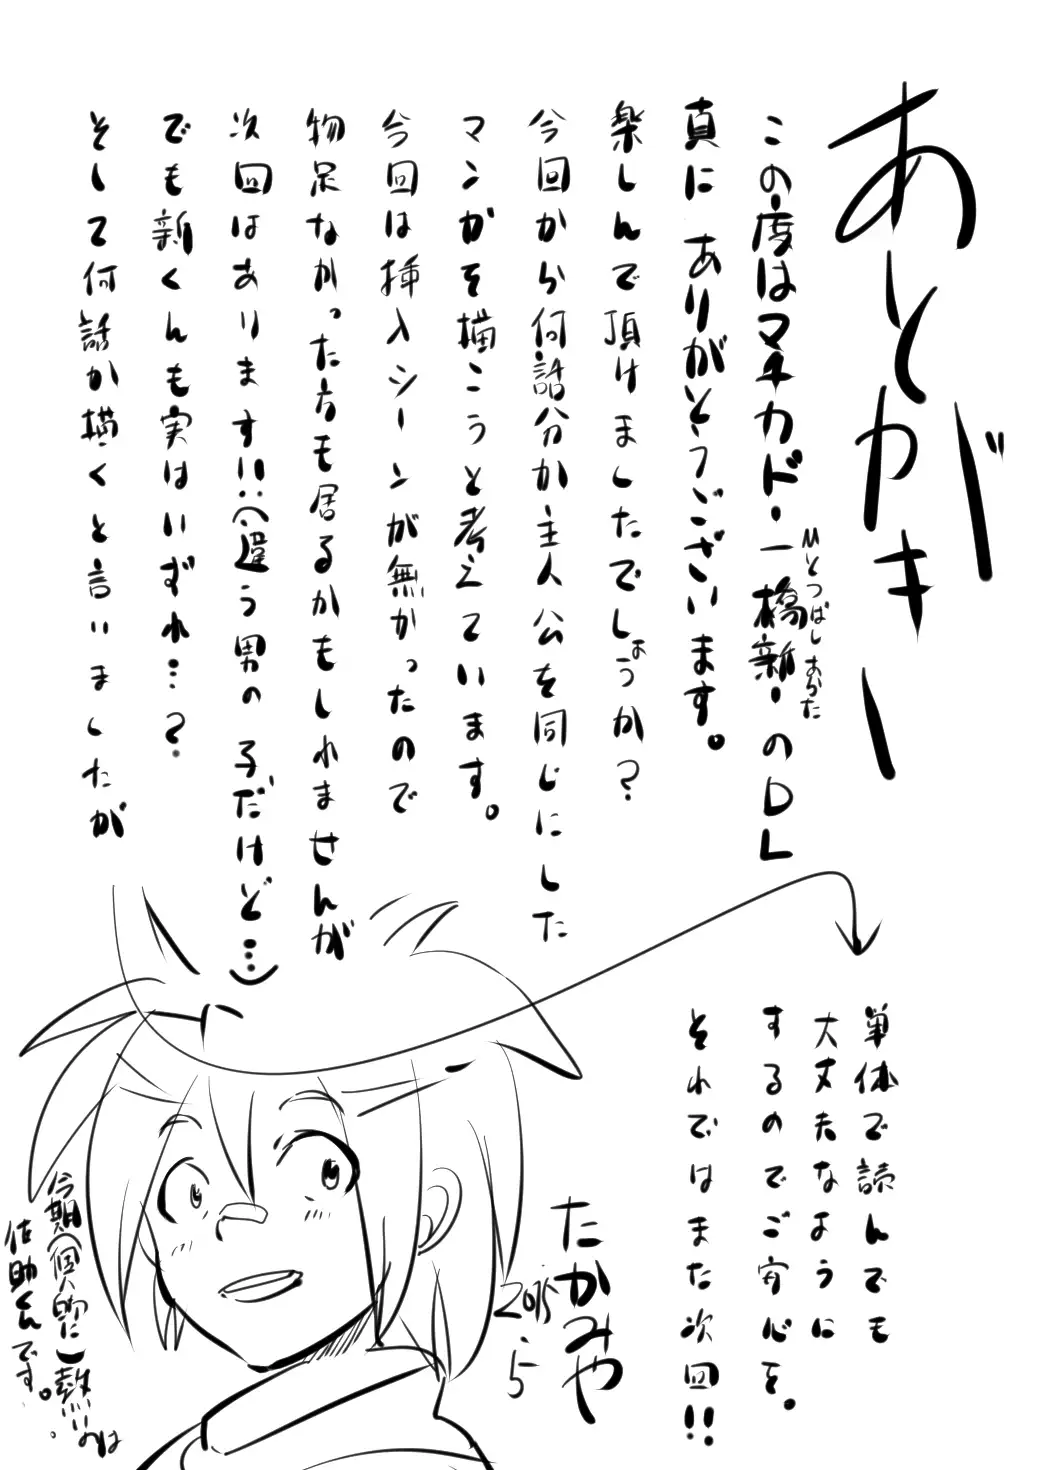 あとがき
この度はマチカド・一橋新・のDL
ひとつばし あらた
真にありがとうございます。
楽しんで頂けましたでしょうか?
今回から何話分か主人公を同じにした
マンガを描こうと考えています。
今回は挿入シーンが無かったので
物足なかった方も居るかもしれませんが
次回はあります!!(違う男の子だけど…)
でも新くんも実はいずれ…?
そして何話か描くと言いましたが
単体で読んでも
大丈夫なように
するのでご安心を。
それではまた次回!!
たかみや
2015.5
今期(個人的に)熱いのは
佐助くんです。